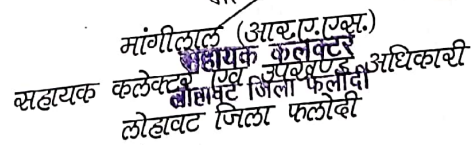 मांगीलाल (आर.ए.एस.)
सहायक कलेक्टर
सहायक कलेक्टर एवं उपखण्ड अधिकारी
लोहावट जिला फलोदी
लोहावट जिला फलोदी